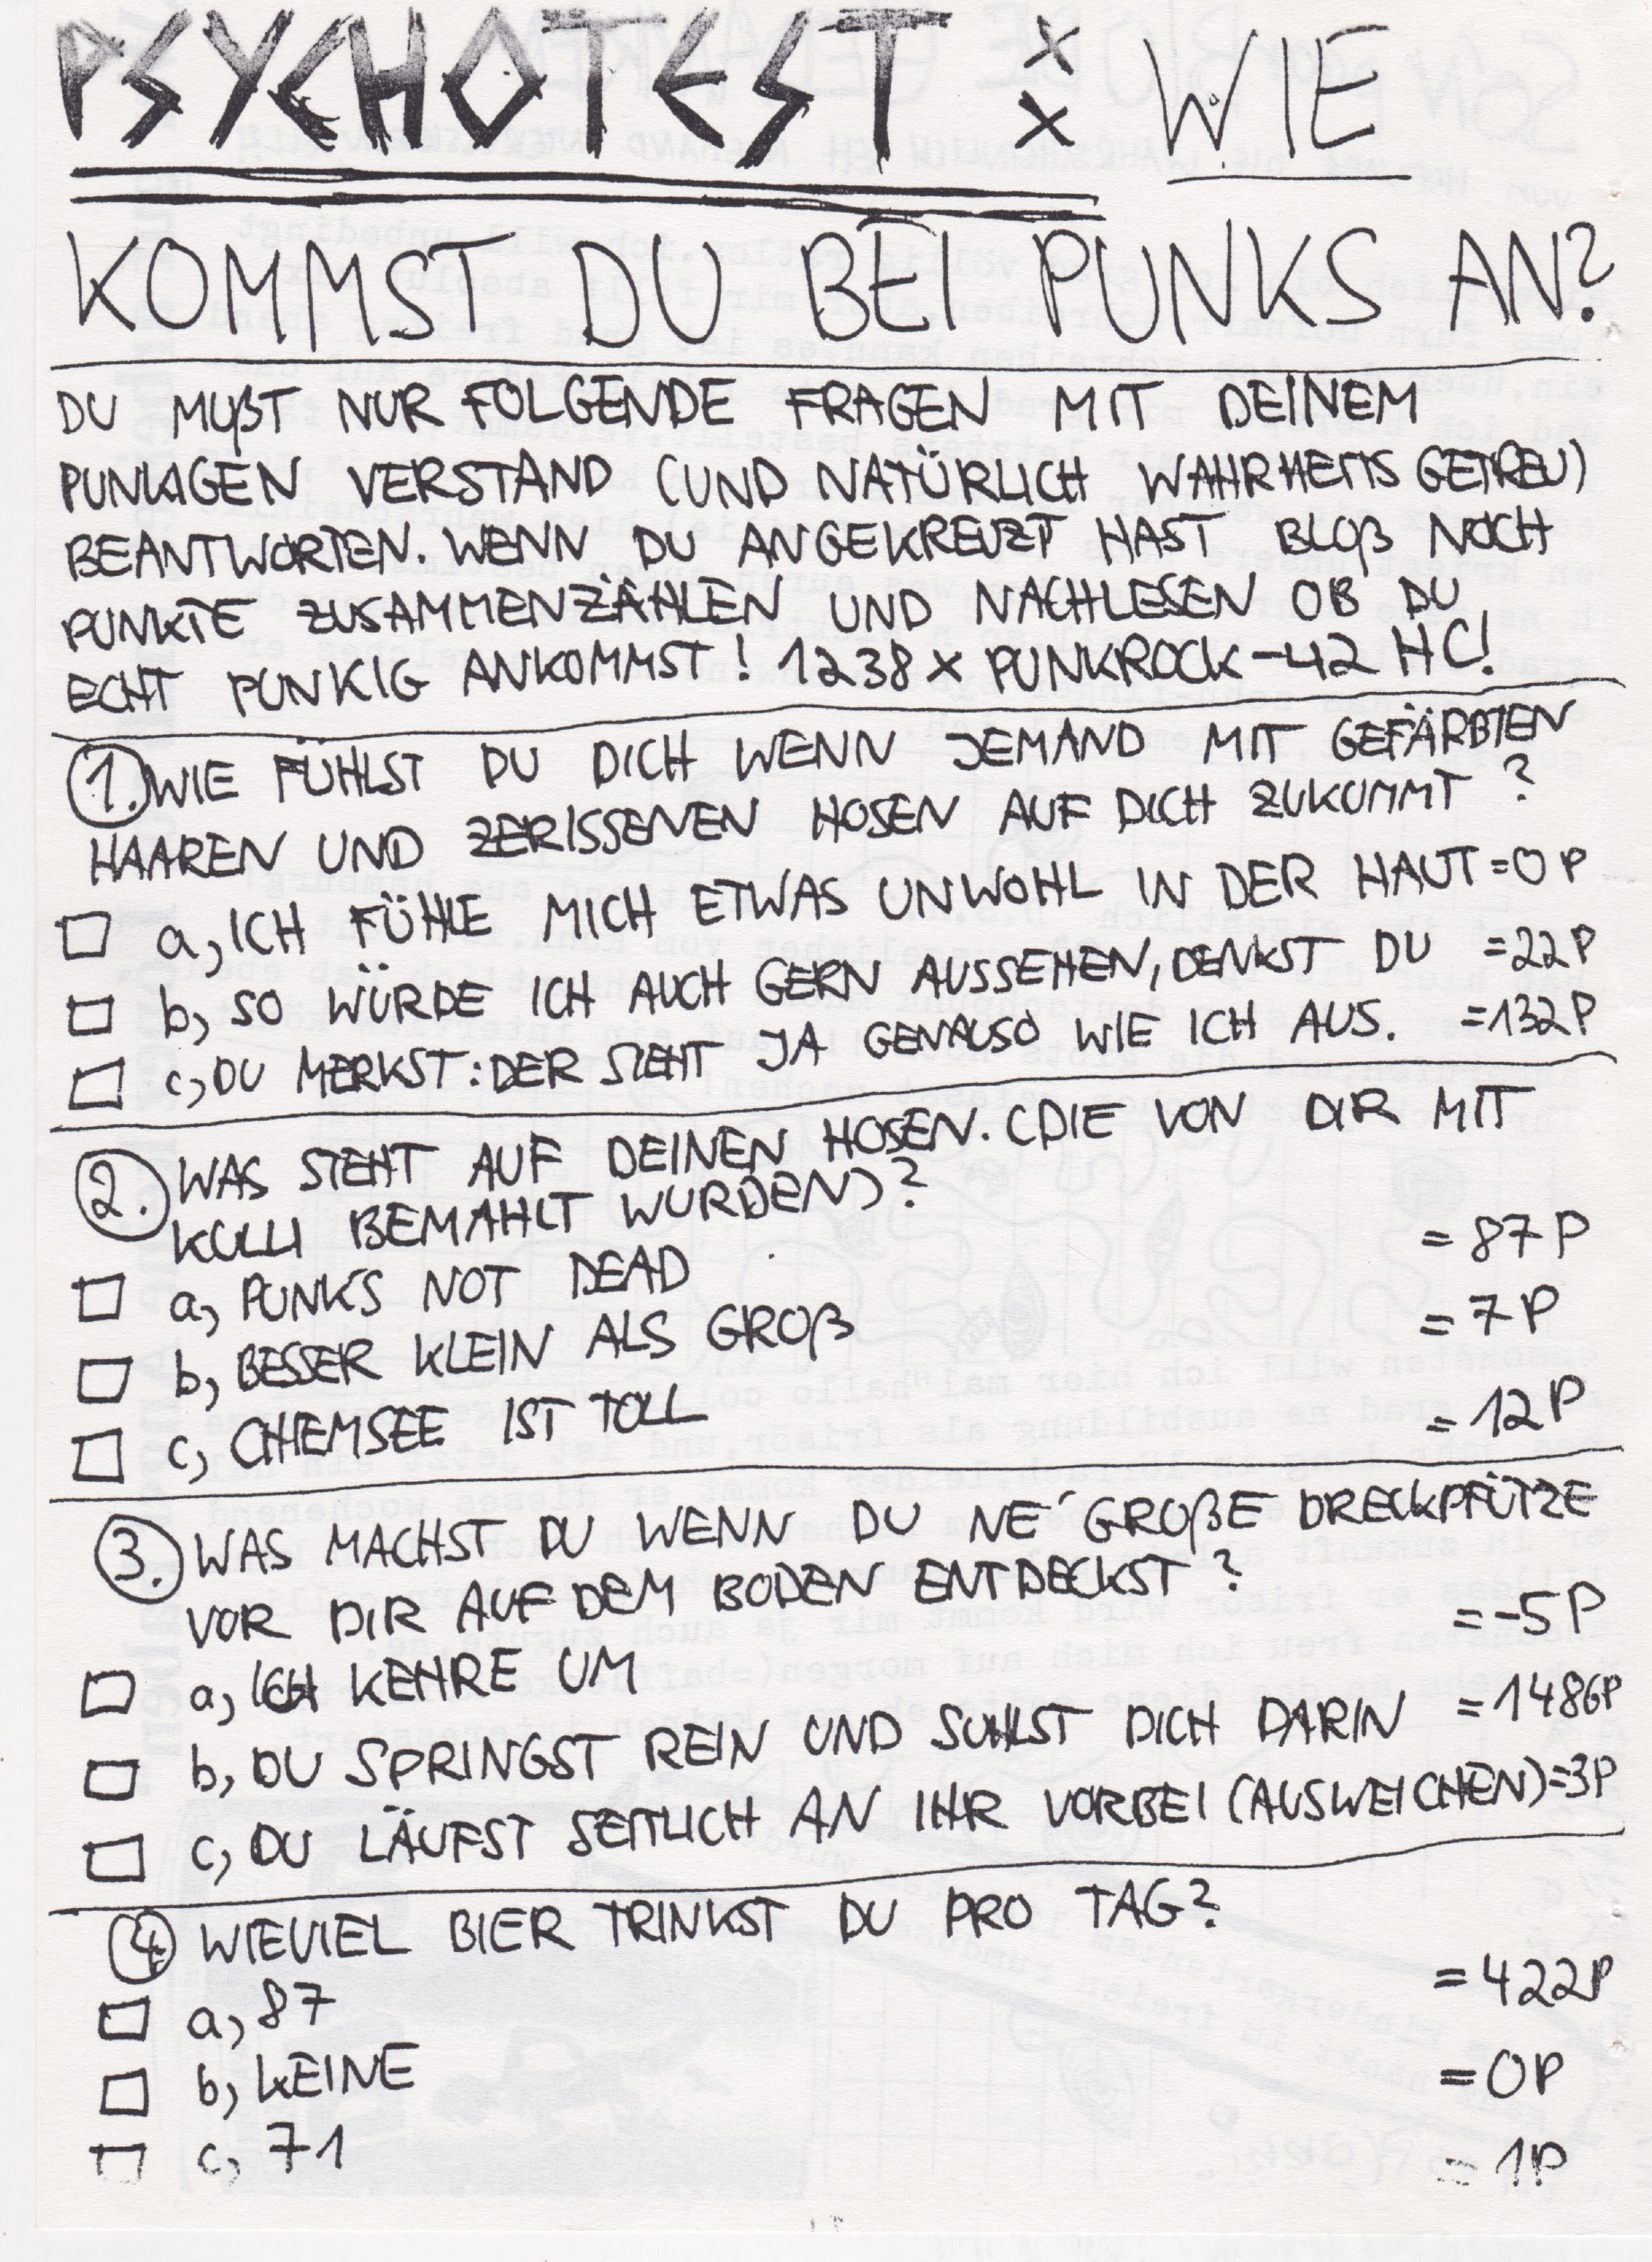 PSYCHOTEST : WIE
KOMMST DU BEI PUNKS AN?
DU MUßT NUR FOLGENDE FRAGEN MIT DEINEM
PUNKIGEN VERSTAND (UND NATÜRLICH WAHRHEITSGETREU)
BEANTWORTEN. WENN DU ANGEKREUZT HAST BLOß NOCH
PUNKTE ZUSAMMENZÄHLEN UND NACHLESEN OB DU
ECHT PUNKIG ANKOMMST! 1238 x PUNKROCK -42 HC!
1. WIE FÜHLST DU DICH WENN JEMAND MIT GEFÄRBTEN
HAAREN UND ZERISSENEN HOSEN AUF DICH ZUKOMMT?
a, ICH FÜHLE MICH ETWAS UNWOHL IN DER HAUT =0P
b, SO WÜRDE ICH AUCH GERN AUSSEHEN, DENKST DU =22P
c, DU MERKST: DER SIEHT JA GENAUSO WIE ICH AUS. =132P
2. WAS STEHT AUF DEINEN HOSEN. (DIE VON DIR MIT
KULLI BEMAHLT WURDEN)?
a, PUNK'S NOT DEAD =87P
b, BESSER KLEIN ALS GROß =7P
c, CHIEMSEE IST TOLL =12P
3. WAS MACHST DU WENN DU NE' GROßE DRECKPFÜTZE
VOR DIR AUF DEM BODEN ENTDECKST?
a, ICH KEHRE UM =-5P
b, DU SPRINGST REIN UND SUHLST DICH DARIN =1486P
c, DU LÄUFST SEITLICH AN IHR VORBEI (AUSWEICHEN) =3P
4. WIEVIEL BIER TRINKST DU PRO TAG?
a, 87 =422P
b, KEINE =0P
c, 71 =1P